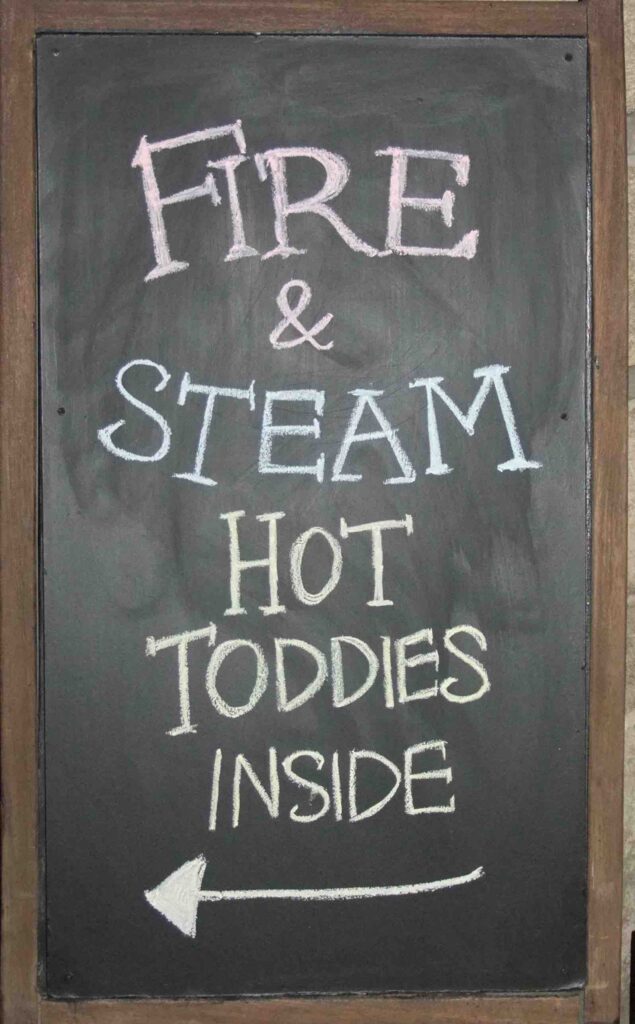 FIRE
&
STEAM
HOT
TODDIES
INSIDE